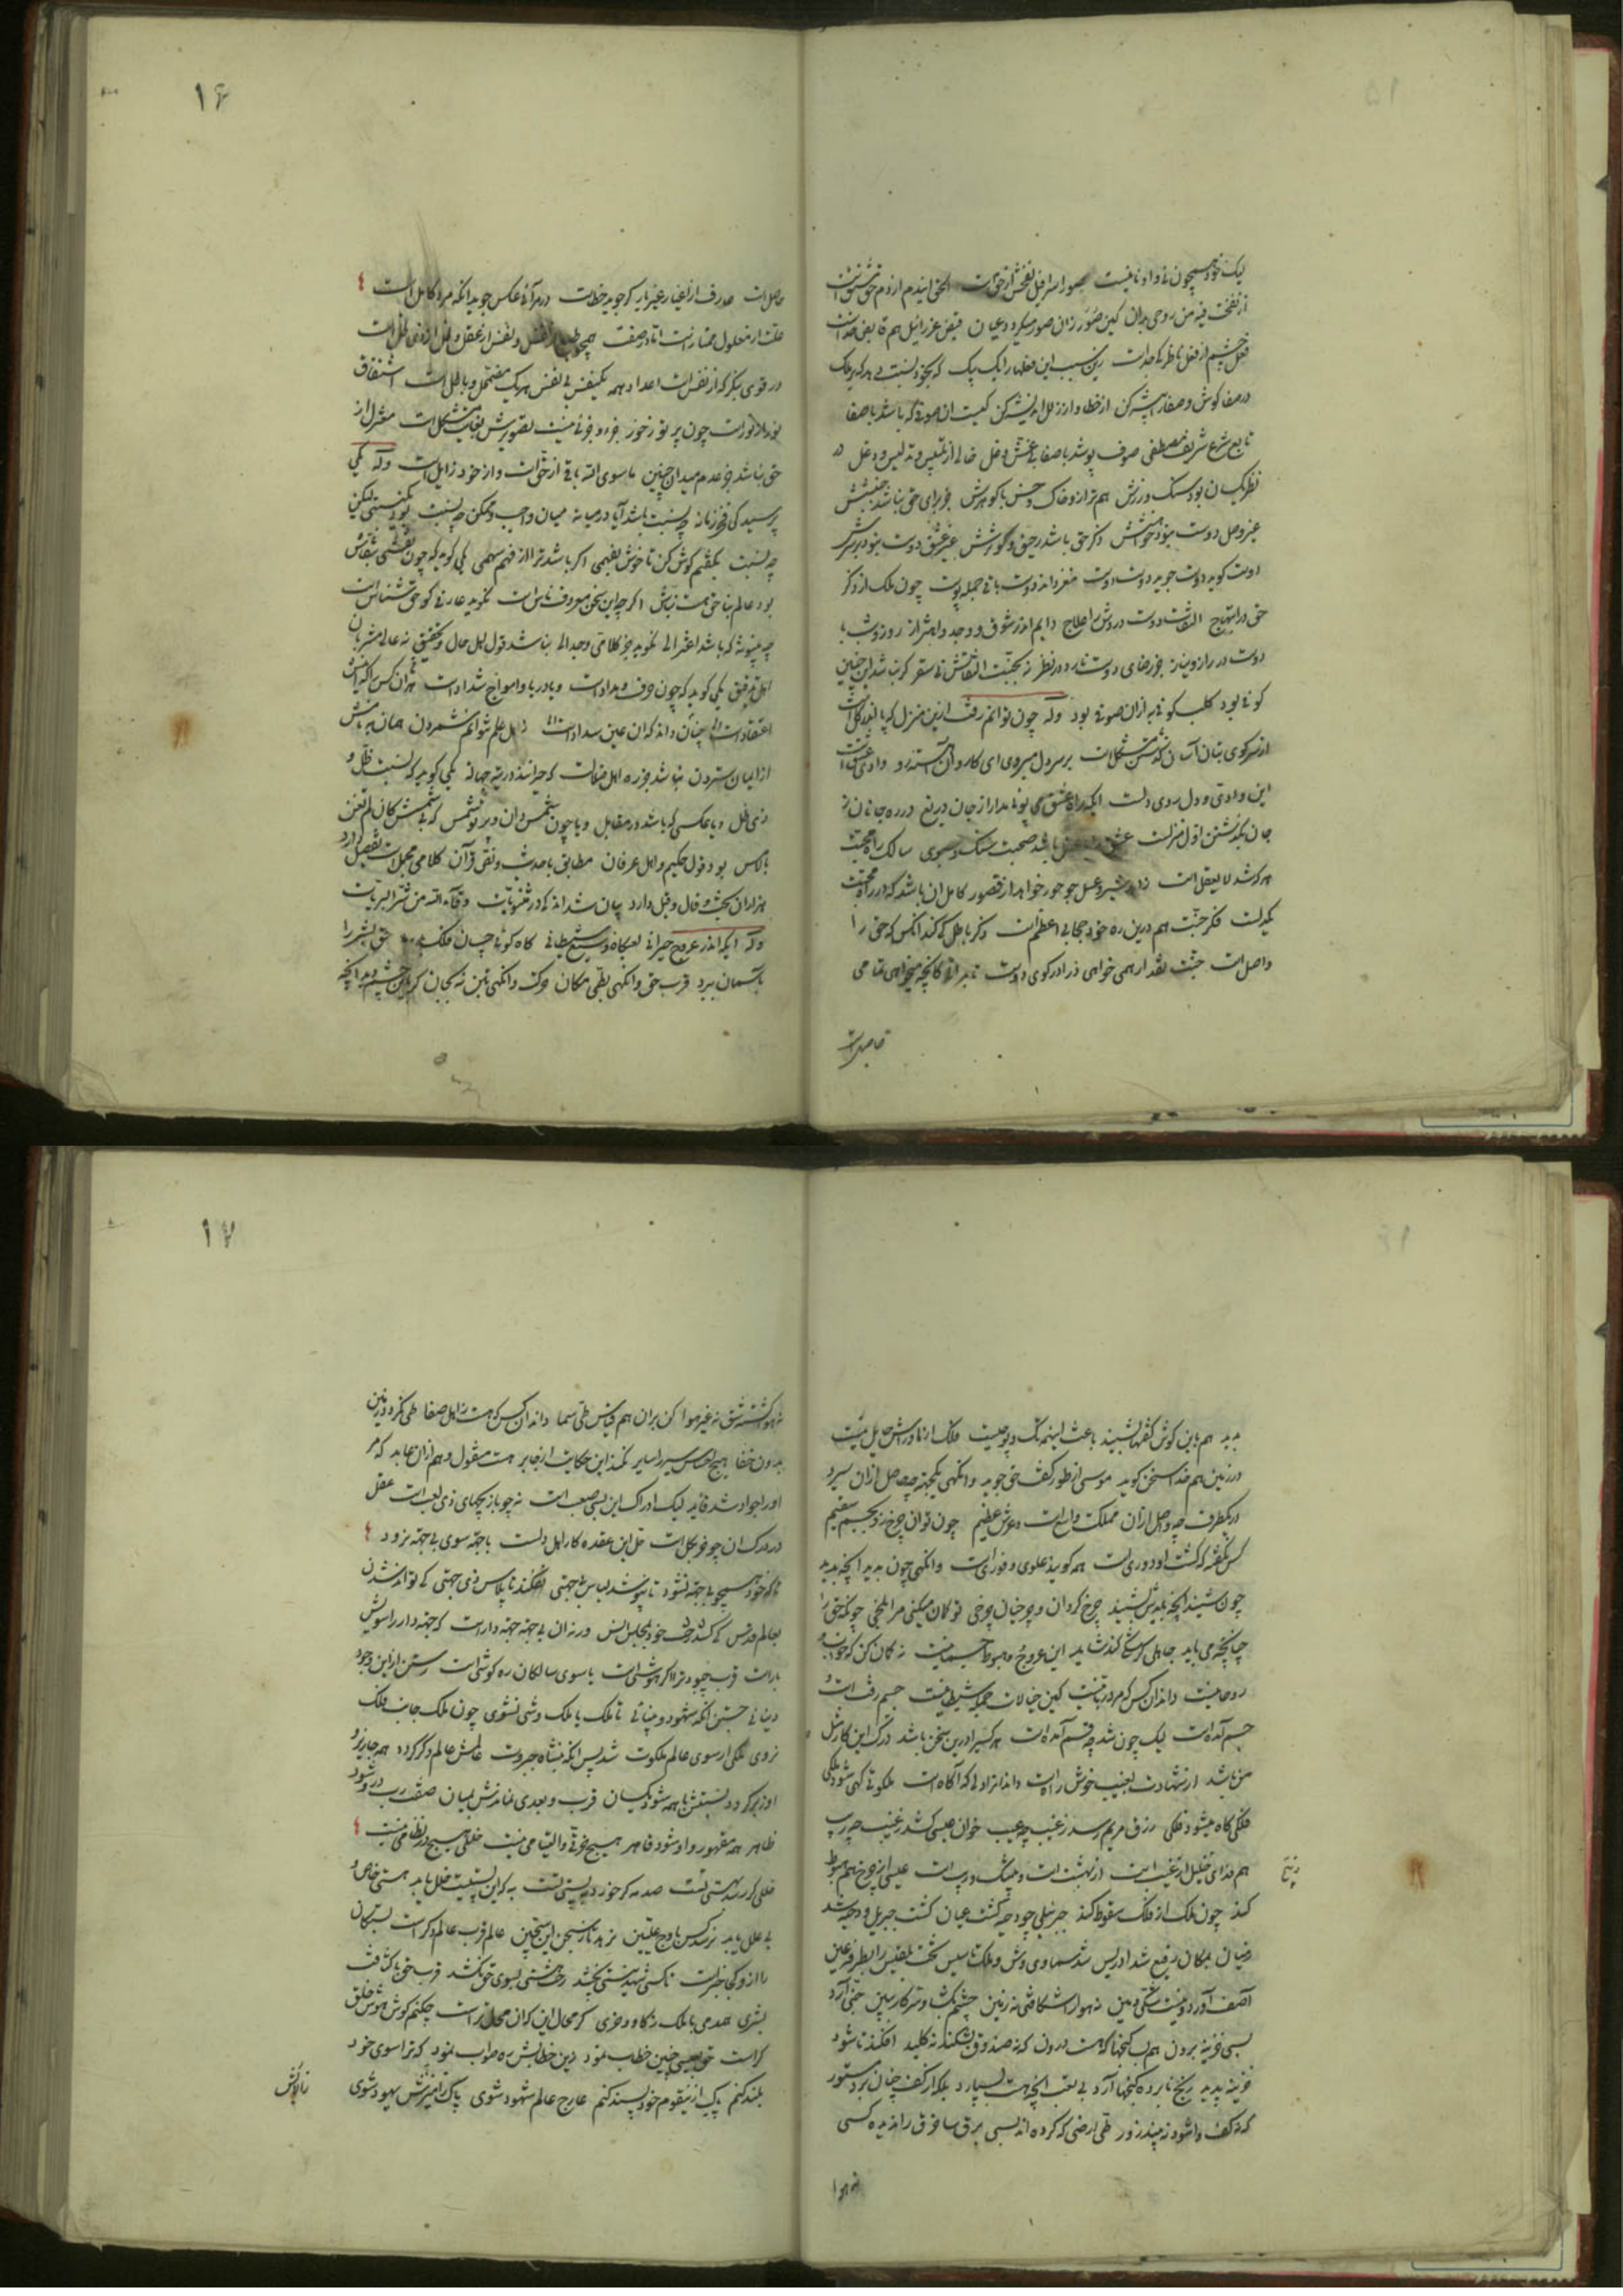 لیک خود همچون نی و او نایست صور اسرافیل نفخش از حق است
از نفخت فیه من روحی بدان کین صور زان صور میگردد عیان قبض عزرائیل هم قابض خداست
فعل چشم از فعل ناظر کی جداست زین سبب این فعلها را یک بیک که بخود نسبت دهد که بر ملک
در صفا کوش و صفا اندیشه کن از خطا و از زلل اندیشه کن کیست ان صوفی که باشد با صفا
تابع شرع شریف مصطفی صوف پوشد با صفا بی غش و غل خالی از تلبیس و تدلیس و دغل در
نظر یکسان بود سنک و زرش هم تراز و خاک و خس با کوهرش جز برای حق نباشد جنبشش
غیر وصل دوست نبود خواهشش ذکر حق باشد رحیق و کوثرش غیر عشق دوست نبود بر سرش
دوست کوید دوست جوید دوست دوست مغز داند دوست باقی جمله پوست چون ملک از ذکر
حق در ابتهاج التفات دوست دردش را علاج دایم اندر شوق و وجد و اهتزاز روز و شب با
دوست در راز و نیاز جز رضای دوست نارد در نظر نه بجنت التفاتش نی سقر کر نباشد این چنین
کوفی بود کلب کوفی به ازان صوفی بود وله چون توانم رفت ازین منزل که پا اندر کل است
از سر کوی بتان آسان کذشتن مشکل است بر سر دل میروی ای کاروان آهسته رو وادی عشق است
این وادی و دل روی دلست ایکه راه عشق می پوئی مدار از جان دریغ در ره جانان ز
جان بکذشتن اول منزلست عشق باشد صحبت سنک و سبوی سالک راه محبت
هر که شد لا یعقل است زاهد شیر و عسل جو حور خواهد از قصور کامل ان باشد که در راه محبت
یکدلست فکر جنت هم درین ره خود حجابی اعظم است ذکر باطل کی کند انکس که حق را
واصل است جنت نقد ار همی خواهی درا در کوی دوست تا بدانی کانچه میخواهی تمامی
حاصل است
۱۶
حاصل است عارف از اغیار غیر یار کی جوید خطاست در مرآة عکس جوید انکه مرد کامل است
علت از معلول ممتاز است اما در صفت همچو ظل و نفس از عقل و ظل از ذی ظل است
در قوی بنکر که از نفس است اعداد همه یکنفس بی نفس هر یک مضمحل و باطل است اشتقاق
نور از نور است چون پرتو ز خور جزء و جزئی نیست تصویرش بغایت مشکل است منعزل از
حق نباشد جز عدم میدان چنین ماسوی الله باقی از حق است و از خود زایل است وله یکی
پرسید کی فخر زمانه چه نسبت باشد آیا در میانه میان واجب و ممکن چه نسبت نکو نیستی لیکن
چه نسبت بکفتم کوش کن تا خوش بفهمی اکر باشد ترا از فهم سهمی یکی کوید که چون نقشی ز نقاش
بود عالم بنا حق هست بنّاش اکر چه این سخن معروف ناس است نکوید عارفی کو حق شناس است
چه بینونه که باشد اعتزالی نکوید جز کلامی وجد الی نباشد قول اهل حال و تحقیق نه عالی مشربان
اهل تدقیق یکی کوید که چون حرف و مداد است و یا دریا و امواج شداد است هران کس را که این
اعتقاد است چنان داند که ان عین سداد است ز اهل علم نتوانم شمردن همان به نامش
از ایمان ستردن نباشد جز ره اهل ضلالت که حیرانند در تیه جهالت یکی کوید که نسبت ظل و
ذی ظل و یا عکسی که باشد در مقابل و یا چون شمس دان و پرتو شمس که بی شمسش کان لم تغن
بالامس بود قول حکیم و اهل عرفان مطابق با حدیث و نص قرآن کلامی مجمل است تفصیل دارد
هزاران بحث و قال و قیل دارد بیان شد اندکی در مثنویات وقاک الله من شر البریات
وله ایکه اندر عروج حیرانی لعبکاه وساوس شیطانی کاه کوئی چسان فلک حق بشر را
باسمان ببرد قرب حق وانکهی بطی مکان حرکت وانکهی بتن نه بجان کر باین چشم دید انچه
بدید هم باین کوش کفتها بشنید باعث اینهمه تک و پو چیست فلک از ماوراش حایل نیست
در زمین هم خدا سخن کوید موسی از طور کشف حق جوید وانکهی یکجهته چه حاصل ازان سیرد
در یکطرف چه واصل ازان مملکت واسع است و عرش عظیم چون توان چرخ زد بجسم سقیم
کس نکفته که کشت او دوری است همه کوید علوی و فوری است وانکهی چون بدید انچه بدید
چون شنید انچه بایدش شنید چرخ کردان و پر چنان چرخی تو کمان میکنی مر ا بلخی چونکه حق را
چنانچه می باید جاهلی کر سکی کند شاید این عروج و هبوط جسمی نیست نه کمان کن که خود
روحانیت داند ان کس که مرد ربانیست کین خیالات جمله شیطانیست جسم رفته است و
جسم آمده است لیک چون شد چه قسم آمده است هر کسی را درین سخن باشد درک این کار شغل
من باشد از شهادت بغیب خوش راه است داند انرا دلی که آکاه است ملکوتی کهی شود ملکی
فلکی کاه میشود فلکی رزق مریم رسد ز غیب چه عیب خوان عیسی کشد ز غیب چه ریب
هم فدای خلیل از غیب است از بهشت است و نیشک و ریب است عیسی از چرخ هم هبوط
کند چون ملک از فلک سقوط کند جبرئیلی چو دحیه کشت عیان کشت جبریل و دحیه شد
دنیان بمکان رفیع شد ادریس شد سماوی وش و ملک تاسیس تخت بلقیس را بطرفة عین
آصف آورد و نیست شکی و مین نه هوا را شکافتی نه زمین چشم بکشا و سر کار ببین جنی آرد
بسی خزینه برون هم بس کنجها که هست درون که نه صندوق بشکند نه کلید افکند تا شود
خزینه پدید رنج نابرده کنجها آرد بی تعب انچه هست بسپارد بلکه از کف چنان برد مستور
که نه کف واشود نه بیند زور طی ارضی که کرده اند بسی برق سا خرق را ندیده کسی
نه هوا
۱۷
نه هوا کشته شق نه غیر هوا کن بران هم قیاس طی سما داند ان کس که هست ز اهل صفا طی نکردد زمین
بدون خفا هیچ احساس سیر را سایر نکند این حکایت از جابر هست منقول و هم ازان عابد که مر
او را جواد شد قاید لیک ادراک این بسی صعب است نه چو بازیچهای ذی لعب است عقل
در درک ان چو خر بکل است حل این عقده کار اهل دلست با جهته سوی بی جهته نرود
تا که خود همچو بی جهته نشود تا نپوشد لباس بی جهتی بفکند تا پلاس ذی جهتی کی تواند شدن
بعالم قدس کی کشد رخت خود بمجلس انس ورنه ان بی جهته جهته دار است که جهته دار را سویش
بار است قرب چبود ترا اکر هوشی است با سوی سالکان ره کوشی است رستن از این وجود
دنیائی جستن انکه شهود و بینائی تا ملک یا ملک وشی نشوی چون ملک جانب فلک
نروی ملکی ار سوی عالم ملکوت شد پس انکه بشاه جبروت عالمش عالم دکر کردد همه جا زیر و
او زبر کردد نسبتش با همه شود یکسان قرب و بعدی نماندش بمیان صفت رب در و شود
ظاهر همه مقهور و او شود قاهر هیچ خرقی و التیامی نیست خللی هیچ در نظامی نیست
خللی کر رسد بهستی تست صدمه کر خورد به پستی تست به که این پستیت خلل یابد هستی خاص
بی علل یابد نرسد کس باوج علیین نرهد تا ز سجن این سجین عالم قرب عالم دکر است بستکان
را از و کجا خبر است تا کسی شهد نیستی نچشد رخت هستی بسوی حق نکشد قرب حق با کثافت
بشری همدمی با ملک ز کاو و خری کر محال این که ان محال تر است چکنم کوش هوش خلق
کر است حق بعیسی چنین خطاب نمود زین خطابش ره صواب نمود که ترا سوی خود
بلند کنم پاک ازین قوم خود پسند کنم عارج عالم شهود شوی پاک ز آمیزش یهود شوی
زآلایش